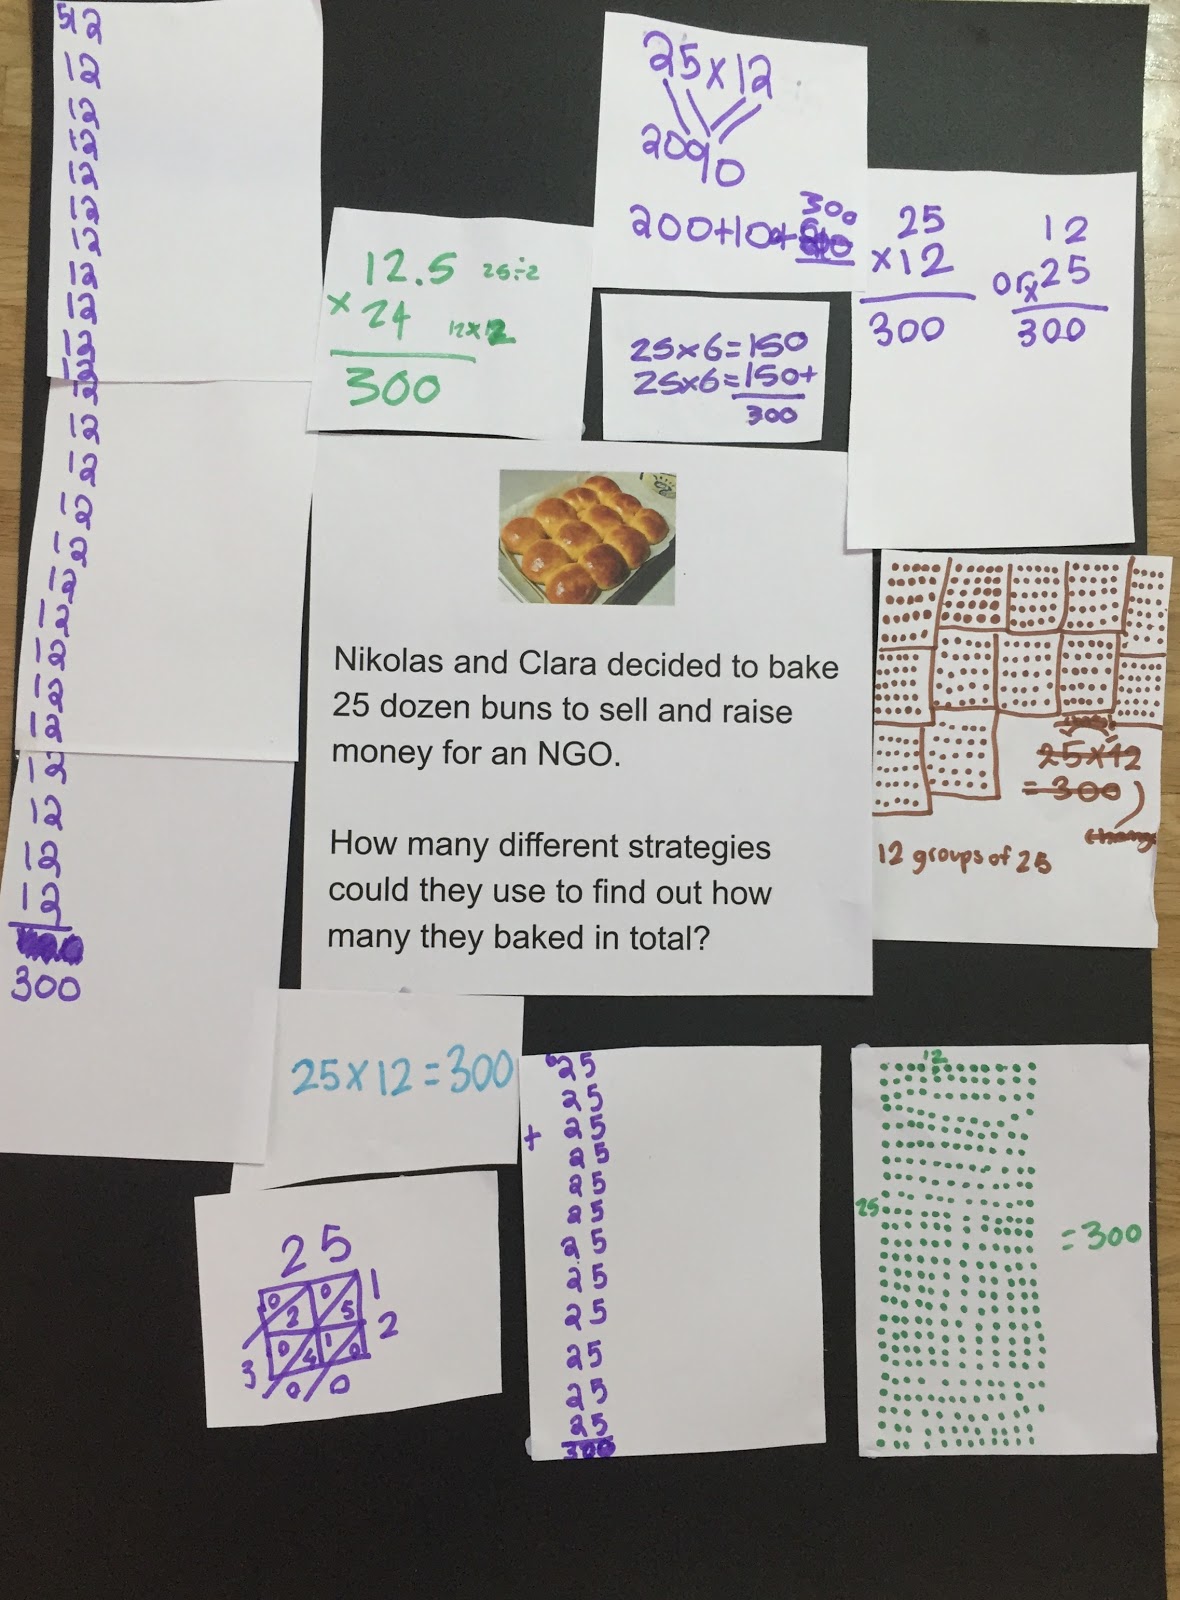 512
12
12
12
12
12
12
12
12
12
12
12
12
12
12
12
12
12
12
12
12
12
12
12
12
300
12.5 25÷2
× 24 12×12
300
25×12
200+10+
300
25×6=150
25×6=150+
300
25
×12
300
or
12
×25
300
Nikolas and Clara decided to bake
25 dozen buns to sell and raise
money for an NGO.
How many different strategies
could they use to find out how
many they baked in total?
25×12
=300
change
12 groups of 25
25×12=300
625
25
+ 25
25
25
25
25
25
25
25
25
25
300
12
25
=300
2 5
0 0 1
2 5
0 1 2
4 0
3
0 0